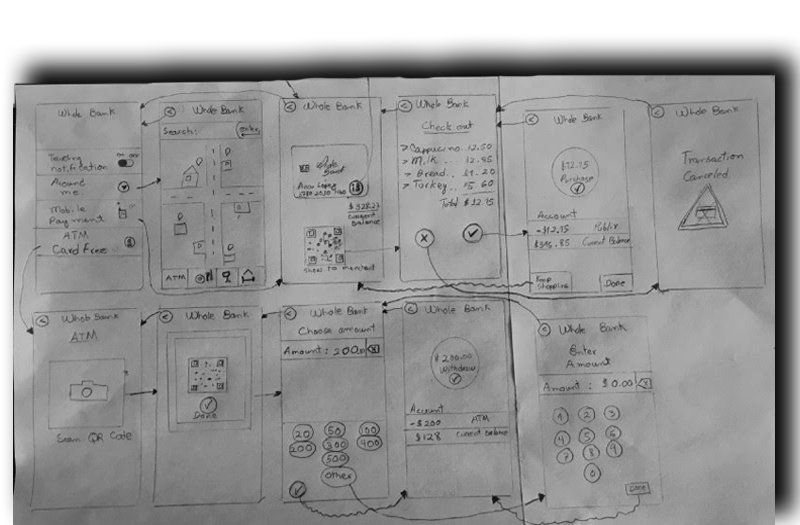 Whole Bank
Traveling
notification
ON OFF
Around
me
Mobile
Payment
ATM
Card Free
$
<
Whole Bank
Search:
enter
ATM
<
Whole Bank
Whole
Bank
$328.23
Current
Balance
Show to merchant
<
Whole Bank
Check out
> Cappucino. 12.50
> Milk..
> Bread..
> Turkey..
Total $12.15
X
<
Whole Bank
$12.15
Purchase
Account
-$12.15 Publix
Current Balance
Keep
Shopping
Done
<
Whole Bank
Transaction
Canceled
<
Whole Bank
ATM
Scan QR Code
<
Whole Bank
Done
<
Whole Bank
Choose amount
Amount: 200.00
20 50 100
200 300 400
500
Other
<
Whole Bank
$200.00
Withdraw
Account
-$200 ATM
$128 Current Balance
<
Whole Bank
Enter
Amount
Amount: $0.00
1 2 3
4 5 6
7 8 9
0
Done